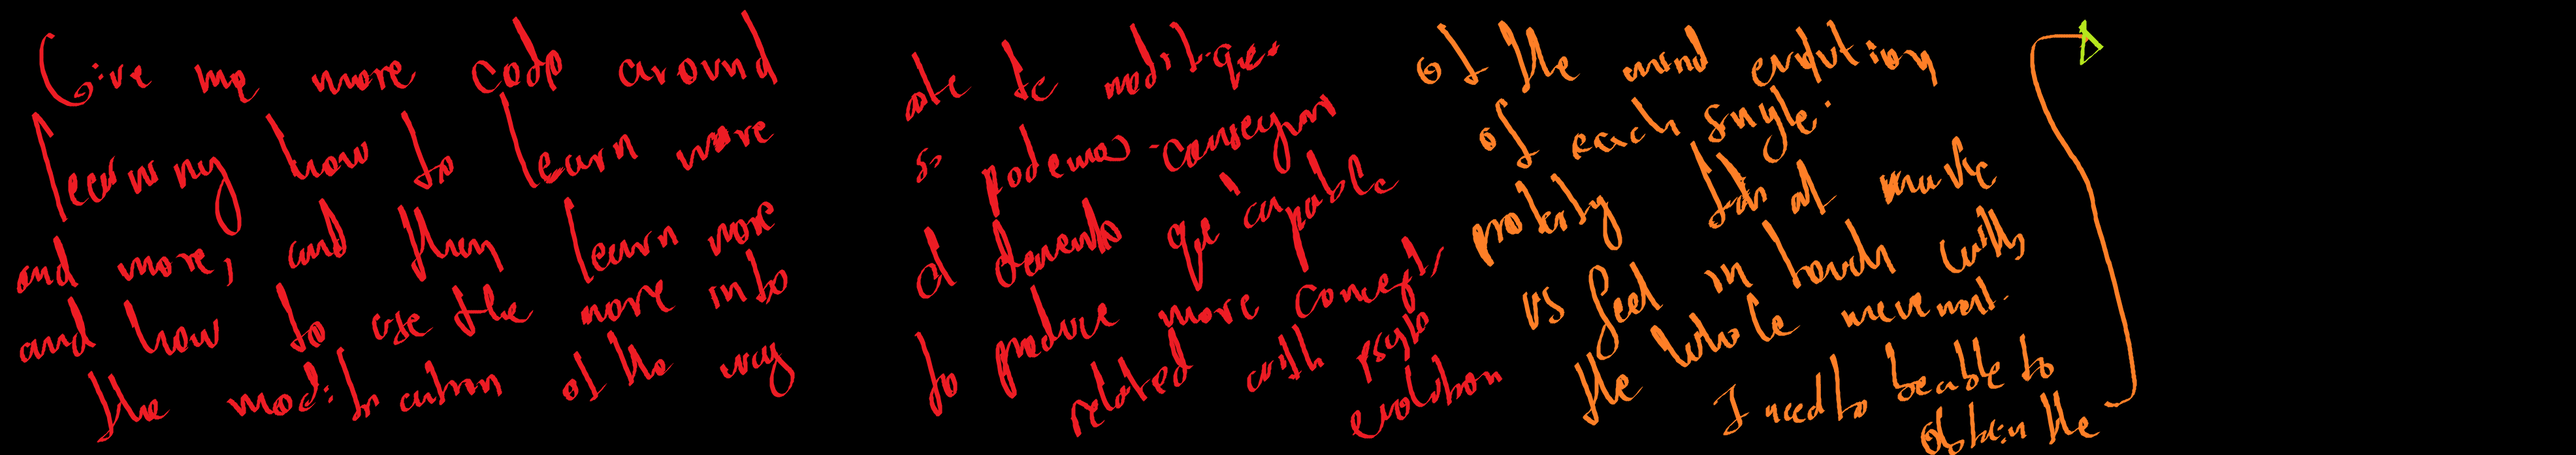 Give me more code around
learning how to learn more
and more, and then learn more
and how to use the more into
the modification of the way
de modifique
si podemos conseguir
el elemento que is capable
to produce more concepts
related with psycho
evolution
of the mind evolution
of each single
that at make
us feel in touch with
the whole movement.
I need to be able to
obtain the